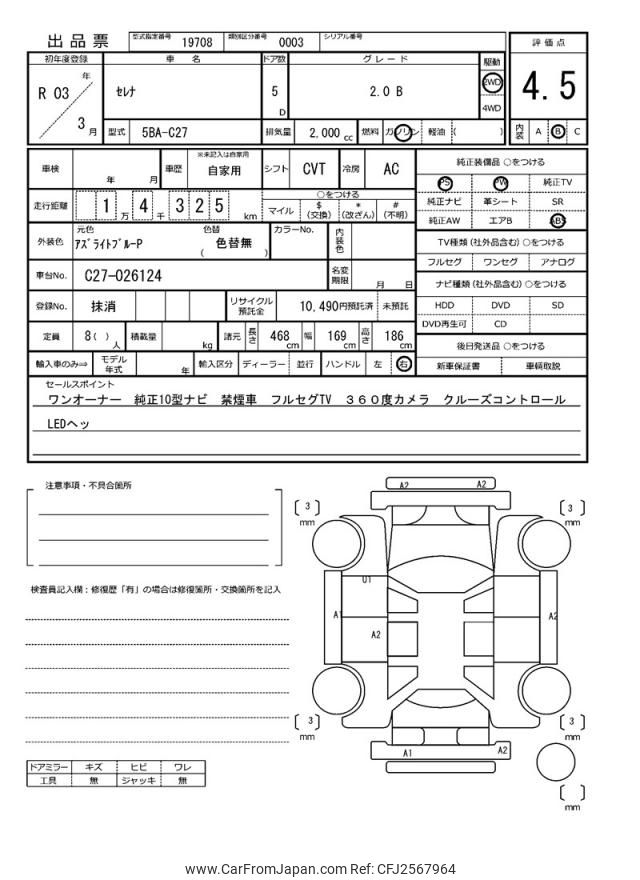 出品票 型式指定番号 19708 類別区分番号 0003 シリアル番号
初年度登録 車 名 ドア数 グレード 駆動 評価点
R 03 年 3 月 セレナ 5 D 2.0 B 2WD 4WD 4.5
型式 5BA-C27 排気量 2,000 cc 燃料 ガソリン 軽油 ( ) 内装 A B C
車検 年 月 車歴 ※未記入は自家用 自家用 シフト CVT 冷房 AC
走行距離 1 万 4 千 3 2 5 km ○をつける マイル $ (交換) * (改ざん) # (不明)
外装色 元色 アズライトブルーP 色替 ( 色替無 ) カラーNo. 内装色
車台No. C27-026124 名変期限 月 日
登録No. 抹消 リサイクル預託金 10,490円預託済 未預託
定員 8( ) 人 積載量 kg 諸元 長さ 468 cm 幅 169 cm 高さ 186 cm
輸入車のみ⇒ モデル年式 年 輸入区分 ディーラー 並行 ハンドル 左 右
純正装備品 ○をつける
PS PW 純正TV
純正ナビ 革シート SR
純正AW エアB ABS
TV種類(社外品含む) ○をつける
フルセグ ワンセグ アナログ
ナビ種類(社外品含む) ○をつける
HDD DVD SD
DVD再生可 CD
後日発送品 ○をつける
新車保証書 車輌取説
セールスポイント
ワンオーナー 純正10型ナビ 禁煙車 フルセグTV 360度カメラ クルーズコントロール
LEDヘッ
注意事項・不具合箇所
検査員記入欄:修復歴「有」の場合は修復箇所・交換箇所を記入
ドアミラー キズ ヒビ ワレ
工具 無 ジャッキ 無
A2 A2
3 mm
3 mm
U1
A1 A2 A2
3 mm
3 mm
A1 A2
mm
www.CarFromJapan.com Ref: CFJ2567964